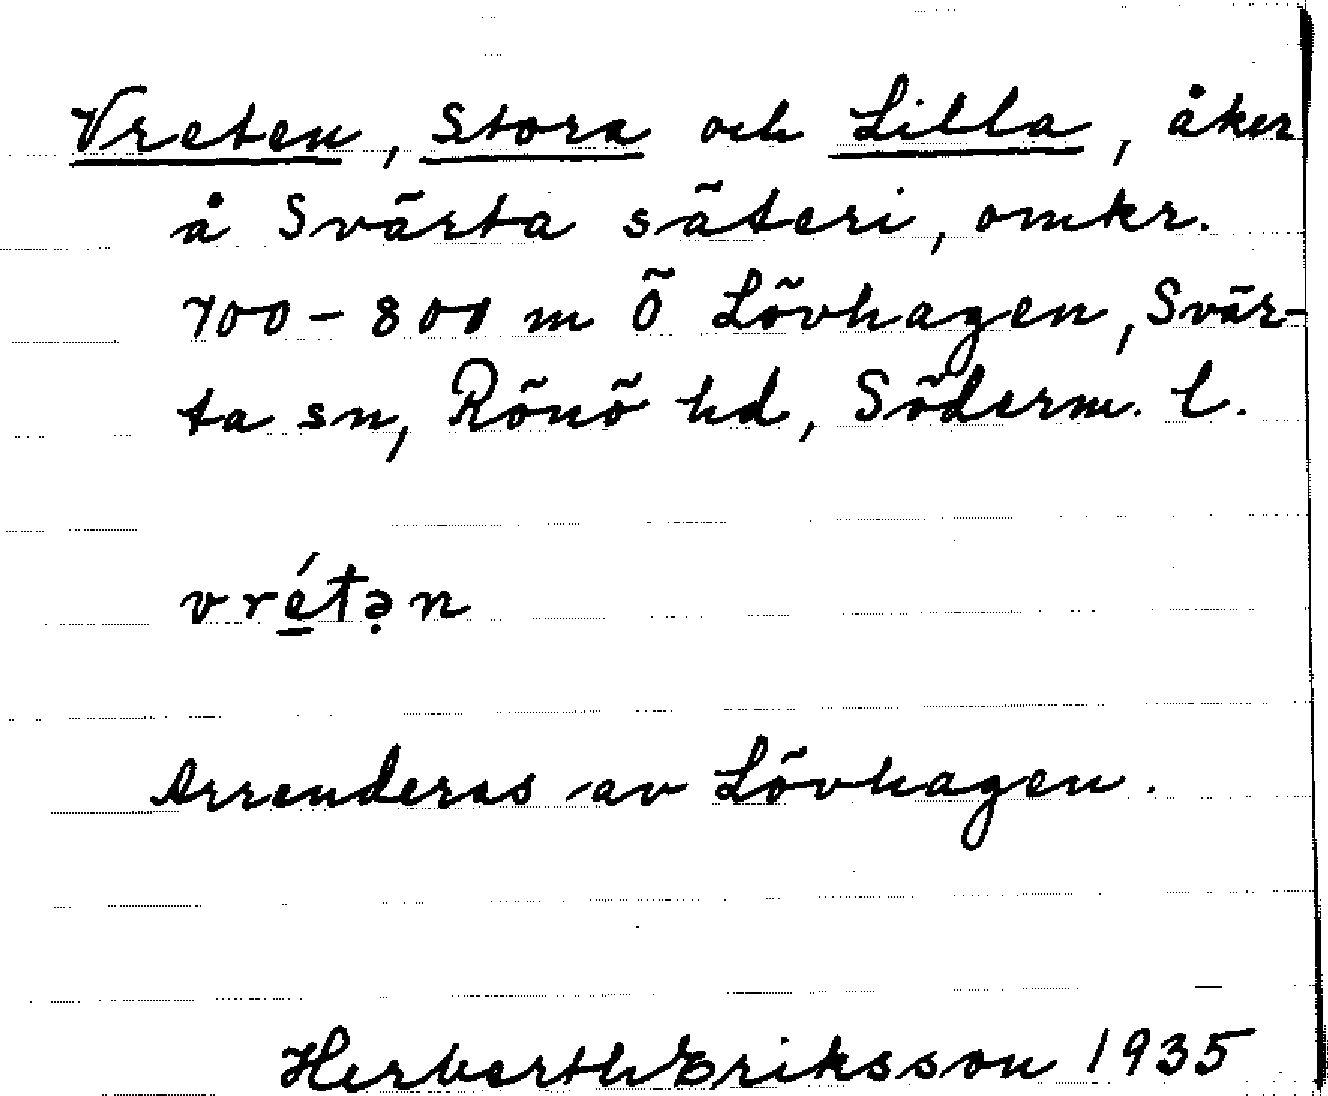 Vreten, Stora och Lilla, åker
å Svärta säteri, omkr.
700-800 m Ö Lövhagen, Svär-
ta sn, Rönö hd, Söderm. l.
vré̱tə̣n
Arrenderas av Lövhagen.
Herberth Eriksson 1935